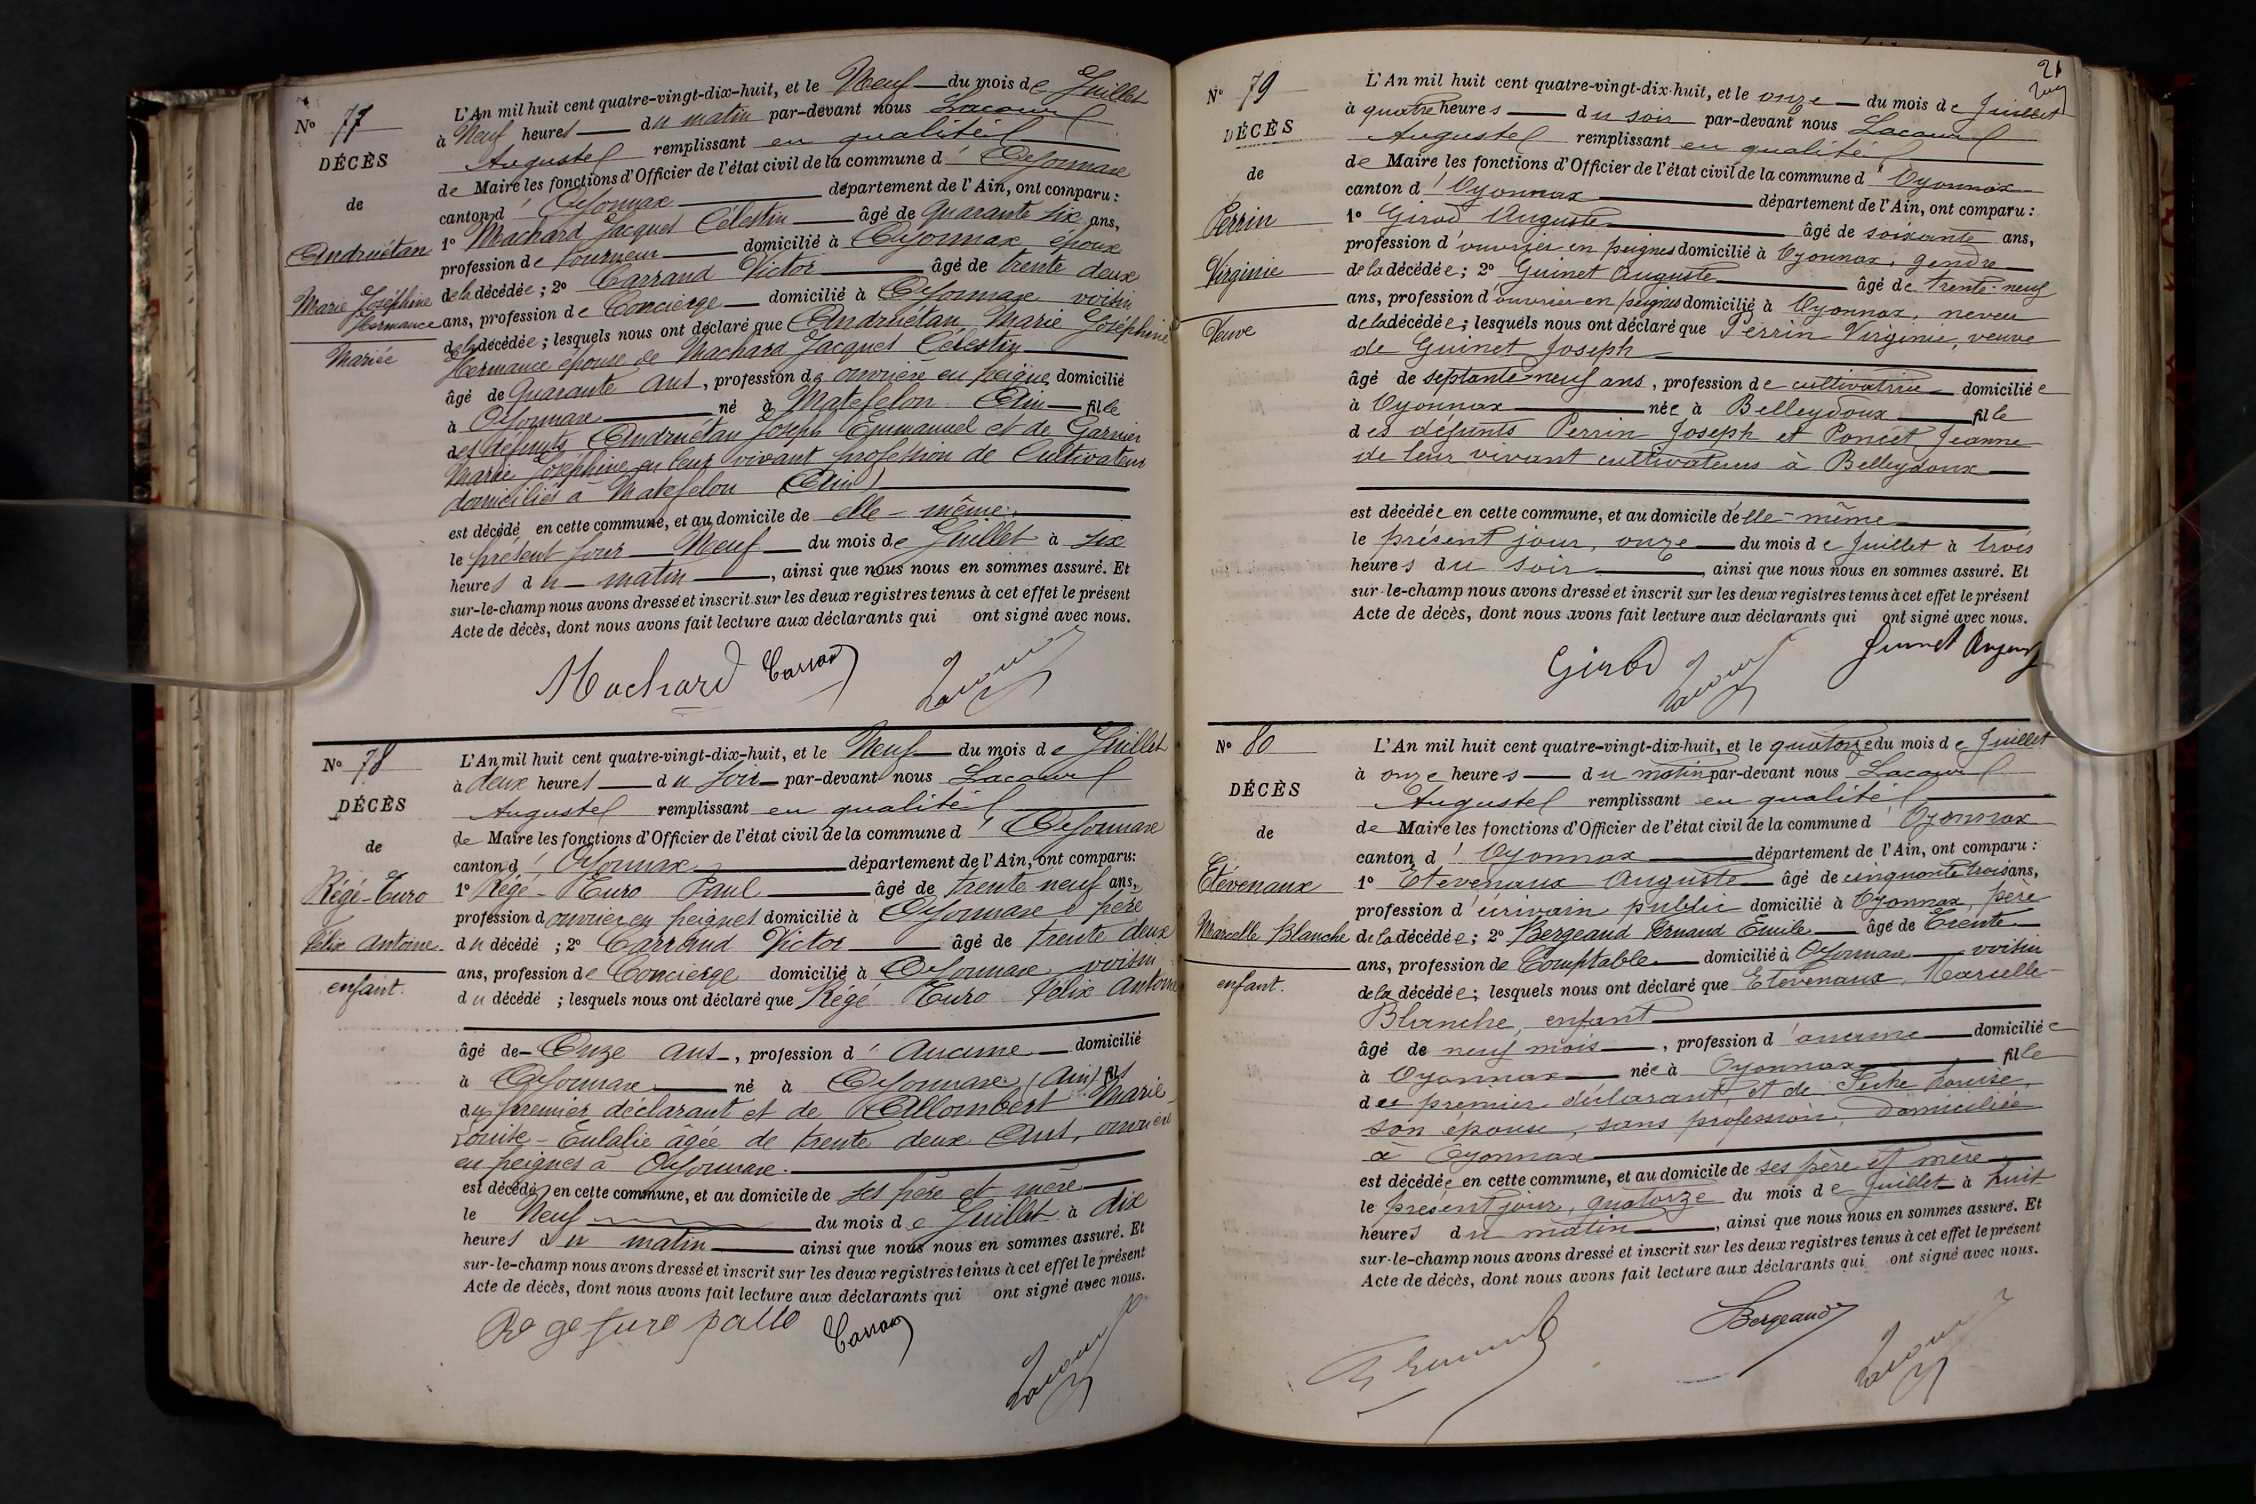 N° 77
DÉCÈS
de
Andruétan
Marie Joséphine
Hermance
Mariée
L'An mil huit cent quatre-vingt-dix-huit, et le Neuf du mois de Juillet
à Neuf heures du matin par-devant nous Lacour
Auguste remplissant en qualité
de Maire les fonctions d'Officier de l'état civil de la commune d'Oyonnax
canton d'Oyonnax département de l'Ain, ont comparu :
1° Machard Jacques Célestin âgé de Quarante six ans,
profession de tourneur domicilié à Oyonnax, époux
de la décédée ; 2° Carrand Victor âgé de trente deux
ans, profession de Concierge domicilié à Oyonnax voisin
de la décédée ; lesquels nous ont déclaré que Andruétan, Marie Joséphine
Hermance épouse de Machard Jacques Célestin
âgé de Quarante ans, profession de ouvrière en peigne domicilié
à Oyonnax né à Matafelon Ain fille
des défunts Andruétan Joseph Emmanuel et de Garnier
Marie Joséphine en leur vivant profession de Cultivateur
domiciliés à Matafelon (Ain)
est décédé en cette commune, et au domicile de elle-même
le présent jour Neuf du mois de Juillet à six
heures du matin, ainsi que nous nous en sommes assuré. Et
sur-le-champ nous avons dressé et inscrit sur les deux registres tenus à cet effet le présent
Acte de décès, dont nous avons fait lecture aux déclarants qui ont signé avec nous.
Machard Carrand Lacour
N° 78
DÉCÈS
de
Régé-Turo
Félix Antoine
enfant.
L'An mil huit cent quatre-vingt-dix-huit, et le Neuf du mois de Juillet
à deux heures du soir par-devant nous Lacour
Auguste remplissant en qualité
de Maire les fonctions d'Officier de l'état civil de la commune d'Oyonnax
canton d'Oyonnax département de l'Ain, ont comparu :
1° Régé-Turo Paul âgé de trente neuf ans,
profession d'ouvrier en peignes domicilié à Oyonnax, père
du décédé ; 2° Carrand Victor âgé de trente deux
ans, profession de Concierge domicilié à Oyonnax voisin
du décédé ; lesquels nous ont déclaré que Régé Turo Félix Antoine
âgé de Onze ans, profession d'Aucune domicilié
à Oyonnax né à Oyonnax (Ain) fils
du premier déclarant et de Allombert Marie
Louise-Eulalie âgée de trente deux Ans, ouvrière
en peignes à Oyonnax.
est décédé en cette commune, et au domicile de ses père et mère
le Neuf du mois de Juillet à dix
heures du matin ainsi que nous nous en sommes assuré. Et
sur-le-champ nous avons dressé et inscrit sur les deux registres tenus à cet effet le présent
Acte de décès, dont nous avons fait lecture aux déclarants qui ont signé avec nous.
Carrand Lacour
21
N° 79
DÉCÈS
de
Perrin
Virginie
Veuve
L'An mil huit cent quatre-vingt-dix-huit, et le onze du mois de Juillet
à quatre heures du soir par-devant nous Lacour
Auguste remplissant en qualité
de Maire les fonctions d'Officier de l'état civil de la commune d'Oyonnax
canton d'Oyonnax département de l'Ain, ont comparu :
1° Girod Auguste âgé de soixante ans,
profession d'ouvrier en peignes domicilié à Oyonnax, gendre
de la décédée ; 2° Guinet Auguste âgé de trente-neuf
ans, profession d'ouvrier en peignes domicilié à Oyonnax, neveu
de la décédée ; lesquels nous ont déclaré que Perrin Virginie, veuve
de Guinet Joseph
âgé de septante-neuf ans, profession de cultivatrice domiciliée
à Oyonnax née à Belleydoux fille
des défunts Perrin Joseph et Poncet Jeanne
de leur vivant cultivateurs à Belleydoux
est décédée en cette commune, et au domicile d'elle-même
le présent jour, onze du mois de Juillet à trois
heures du soir, ainsi que nous nous en sommes assuré. Et
sur-le-champ nous avons dressé et inscrit sur les deux registres tenus à cet effet le présent
Acte de décès, dont nous avons fait lecture aux déclarants qui ont signé avec nous.
Girod Lacour Guinet
N° 80
DÉCÈS
de
Etévenaux
Marcelle Blanche
enfant.
L'An mil huit cent quatre-vingt-dix-huit, et le quatorze du mois de Juillet
à onze heures du matin par-devant nous Lacour
Auguste remplissant en qualité
de Maire les fonctions d'Officier de l'état civil de la commune d'Oyonnax
canton d'Oyonnax département de l'Ain, ont comparu :
1° Etévenaux Auguste âgé de cinquante trois ans,
profession d'écrivain public domicilié à Oyonnax, père
de la décédée ; 2° Bergeaud Ernand Emile âgé de Trente
ans, profession de Comptable domicilié à Oyonnax voisin
de la décédée ; lesquels nous ont déclaré que Etévenaux, Marcelle
Blanche, enfant
âgé de neuf mois, profession d'aucune domiciliée
à Oyonnax née à Oyonnax fille
du premier déclarant, et de Louise,
son épouse, sans profession, domiciliée
à Oyonnax
est décédée en cette commune, et au domicile de ses père et mère
le présent jour, quatorze du mois de Juillet à huit
heures du matin, ainsi que nous nous en sommes assuré. Et
sur-le-champ nous avons dressé et inscrit sur les deux registres tenus à cet effet le présent
Acte de décès, dont nous avons fait lecture aux déclarants qui ont signé avec nous.
Bergeaud Lacour